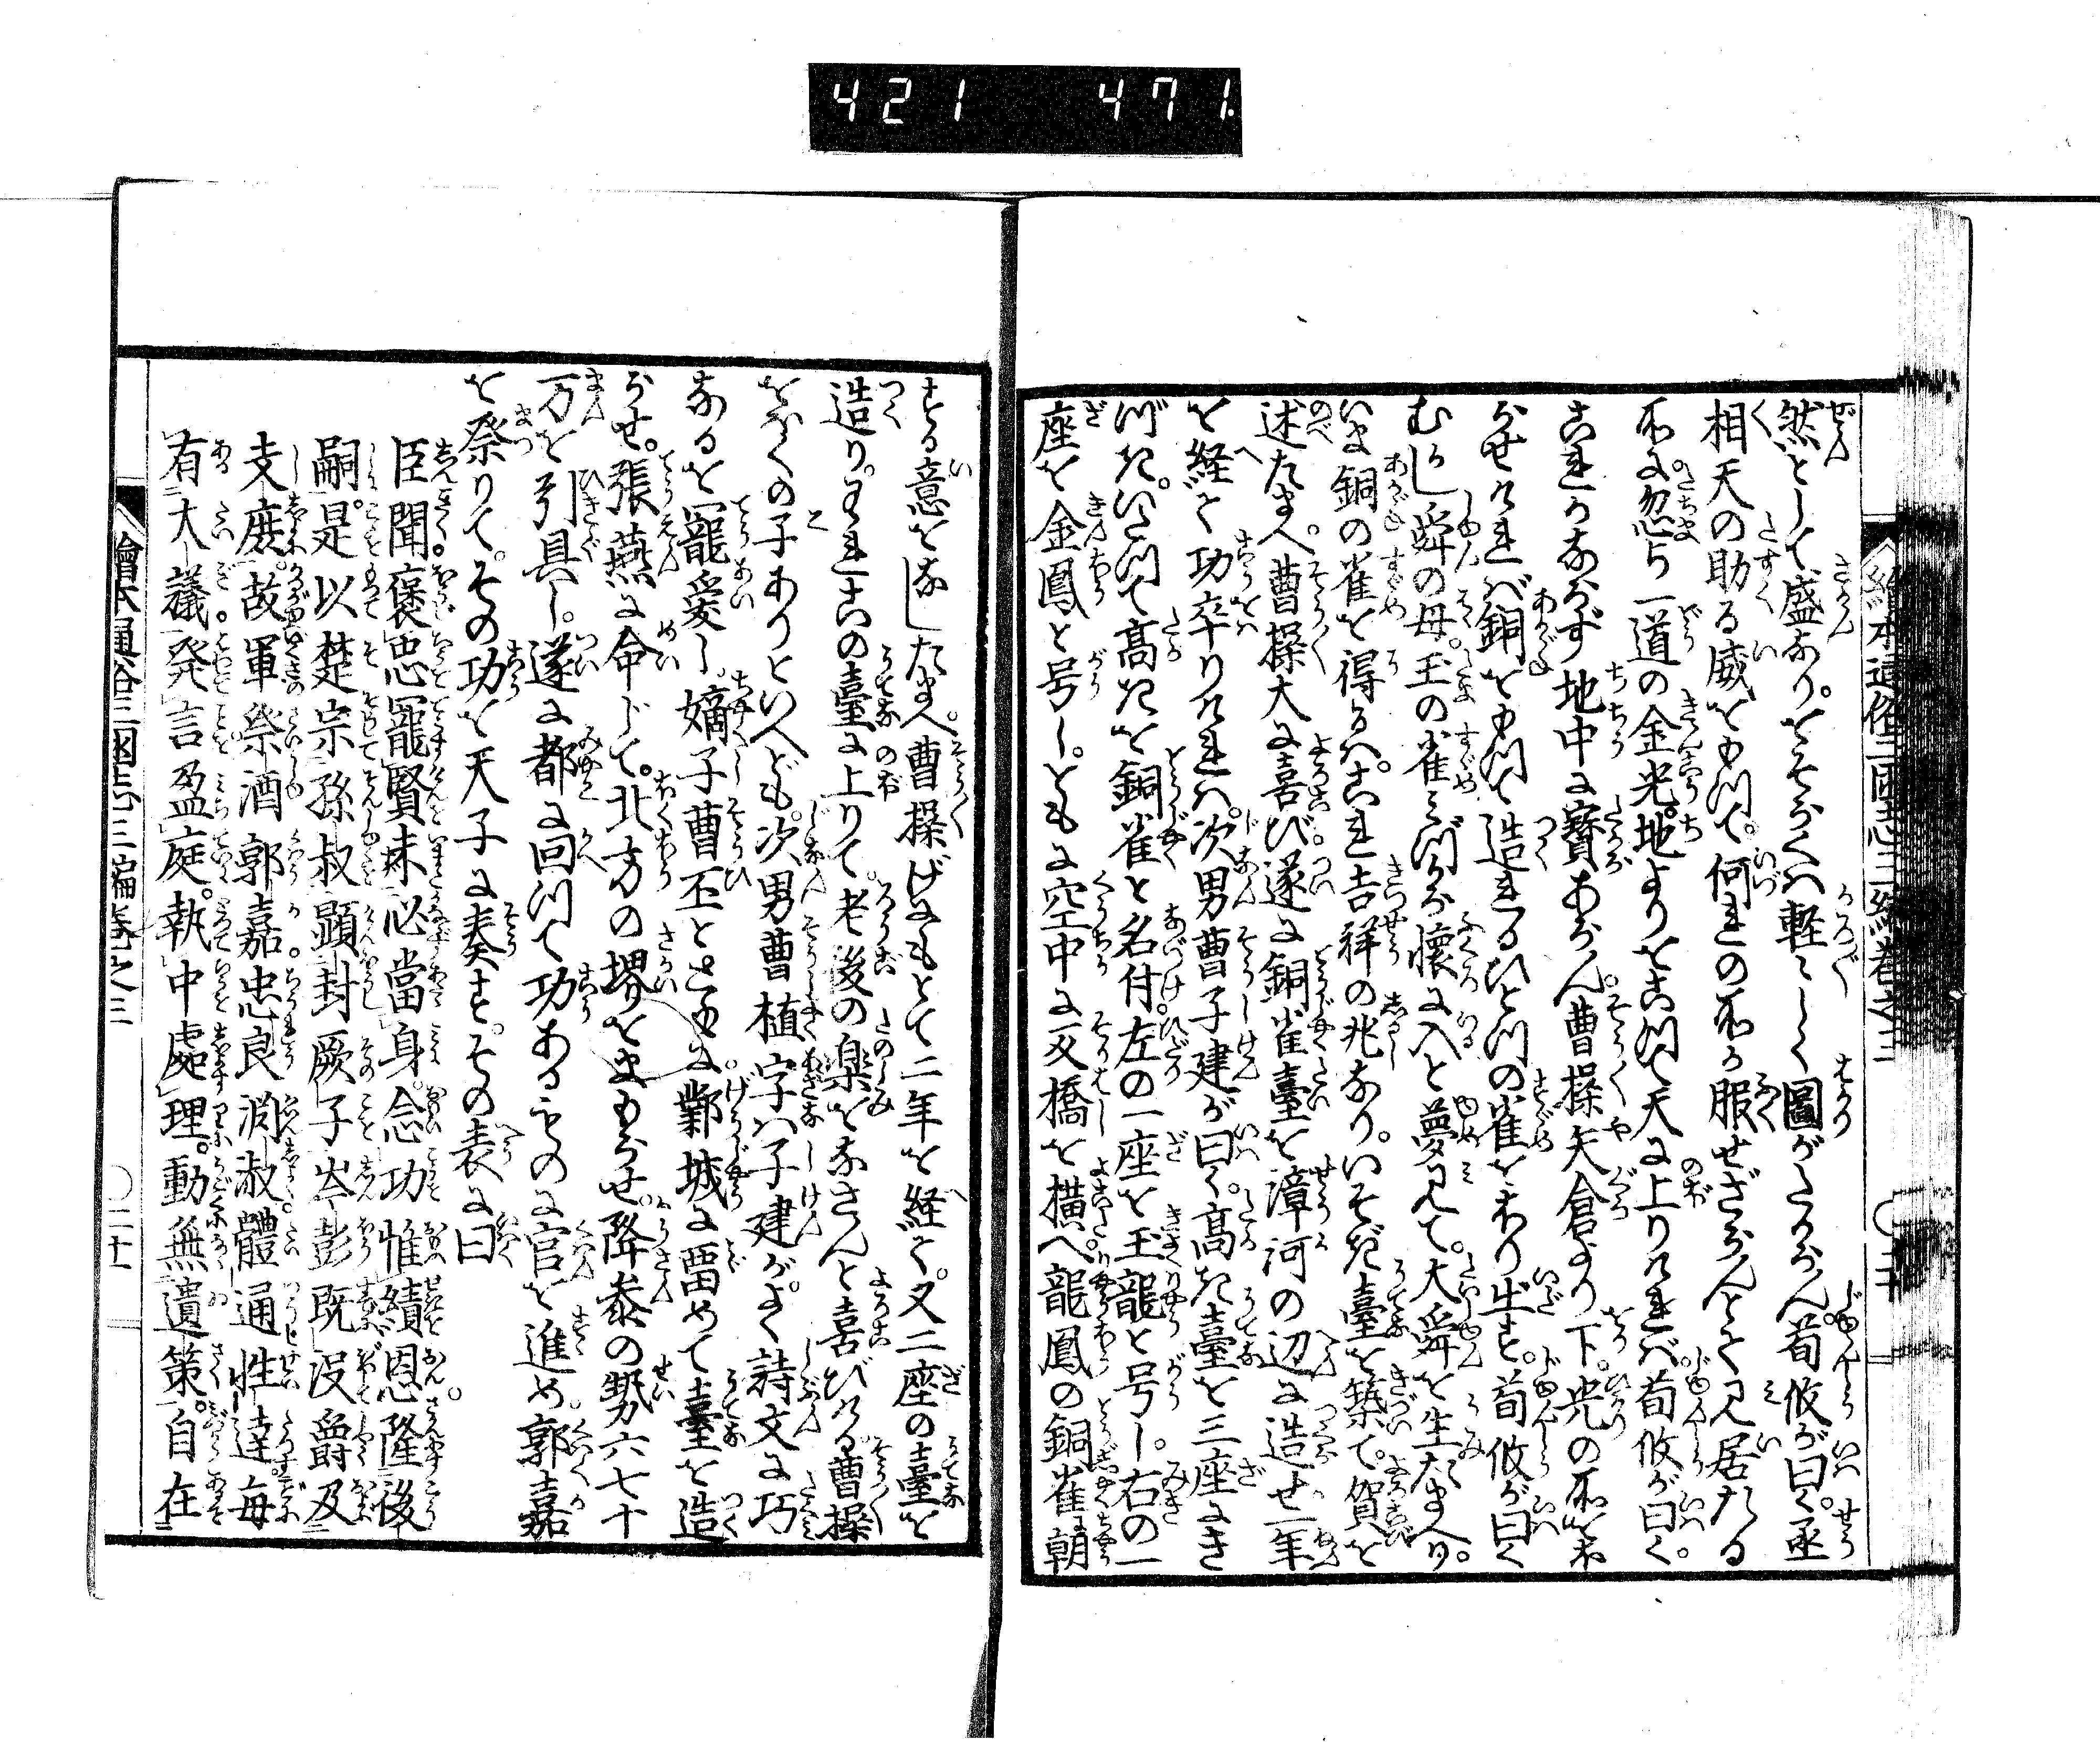 421 471
繪本通俗三國志三編卷之三
然として盛なり。をそらくハ軽々しく圖がたからん。荀攸が曰く。丞
相天の助る威をもつて。何れの所か服せざらんとて見居たる
所に忽ち一道の金光。地よりをこつて天に上りければ。荀攸が曰く。
これかならず地中に寳あらん。曹操矢倉より下。光の所をほ
らせければ銅をもつて造れるひとつの雀をほり出す。荀攸が曰く
むかし舜の母。玉の雀ミづから懷に入と夢見て。大舜を生たまへり。
いま銅の雀を得るハ。これ吉祥の兆なり。いそぎ臺を築て。賀を
述たまへ。曹操大に喜び。遂に銅雀臺を漳河の辺に造せ一年
を経て功卒りけれハ。次男曹子建が曰く。高き臺を三座にき
づき。いたつて高きを銅雀と名付。左の一座を玉龍と号し。右の一
座を金鳳と号し。ともに空中に反橋を横へ。龍鳳の銅雀に朝
する意をなしたまへ。曹操げにもとて二年を経て。又二座の臺を
造り。われこの臺に上りて。老後の楽をなさんと喜びける。曹操
をほくの子ありといへども。次男曹植字ハ子建がよく詩文に巧
なるを寵愛し。嫡子曹丕とともに。鄴城に畱めて臺を造
らせ。張燕に命じて。北方の堺をまもらせ。降參の勢六七十
万を引具し。遂に都に回つて功あるものに官を進め。郭嘉
を祭りて。その功を天子に奏す。その表に曰
臣聞。褒忠寵賢未必當身。念功惟績恩隆後
嗣。是以楚宗孫叔顯封厥子岑彭既没爵及
支庶。故軍祭酒郭嘉。忠良淵叔。體通性達。毎
有大議。発言盈庭。執中處理。動無遺策。自在
繪本通俗三國志三編卷之三
二十